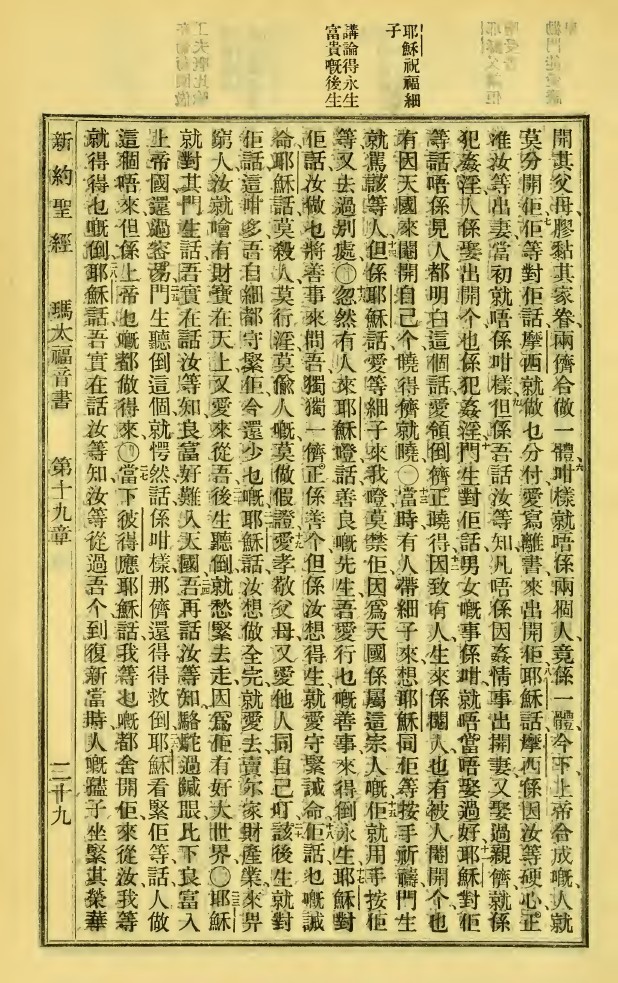 耶穌祝福細
子
講論得永生
富貴嘅後生
開其父母膠黏其家眷兩儕合做一體咁樣就唔係兩個人竟係一體今下上帝合成嘅人就
莫分開佢佢等對佢話摩西就做乜分付愛寫離書來出開佢耶穌話摩西係因汝等硬心正
准汝等出妻當初就唔係咁樣但係吾話汝等知凡唔係因姦情事出開妻又娶過親儕就係
犯姦淫人係娶出開个也係犯姦淫門生對佢話男女嘅事係咁就唔當唔娶過好耶穌對佢
等話唔係見人都明白這個話愛領倒儕正曉得因致有人生來係閹人也有被人閹開个也
有因天國來閹開自己个曉得儕就曉〇當時有人帶細子來想耶穌同佢等按手祈禱門生
就罵該等人但係耶穌話愛等細子來我嶝莫禁佢因爲天國係屬這宗人嘅佢就用手按佢
等又去過別處〇忽然有人來耶穌嶝話善良嘅先生吾愛行乜嘅善事來得倒永生耶穌對
佢話汝做乜將善事來問吾獨獨一儕正係善个但係汝想得生就愛守緊誡命佢話乜嘅誡
命耶穌話莫殺人莫行淫莫偸人嘅莫做假證愛孝敬父母又愛他人同自己叮該後生就對
佢話這咁多吾自細都守緊佢今還少乜嘅耶穌話汝想做全完就愛去賣尓家財產業來畀
窮人汝就噲有財寶在天上又愛來從吾後生聽倒就愁緊去走因爲佢有好大世界〇耶穌
就對其門生話吾實在話汝等知良富好難入天國吾再話汝等知駱駝過鍼眼比下良富入
上帝國還過容易門生聽倒這個就愕然話係咁樣那儕還得得救倒耶穌看緊佢等話人做
這個唔來但係上帝乜嘅都做得來〇當下彼得應耶穌話我等乜嘅都舍開佢來從汝我等
就得得乜嘅倒耶穌話吾實在話汝等知汝等從過吾个到復新當時人嘅孻子坐緊其榮華
新約聖經 瑪太福音書 第十九章 二十九